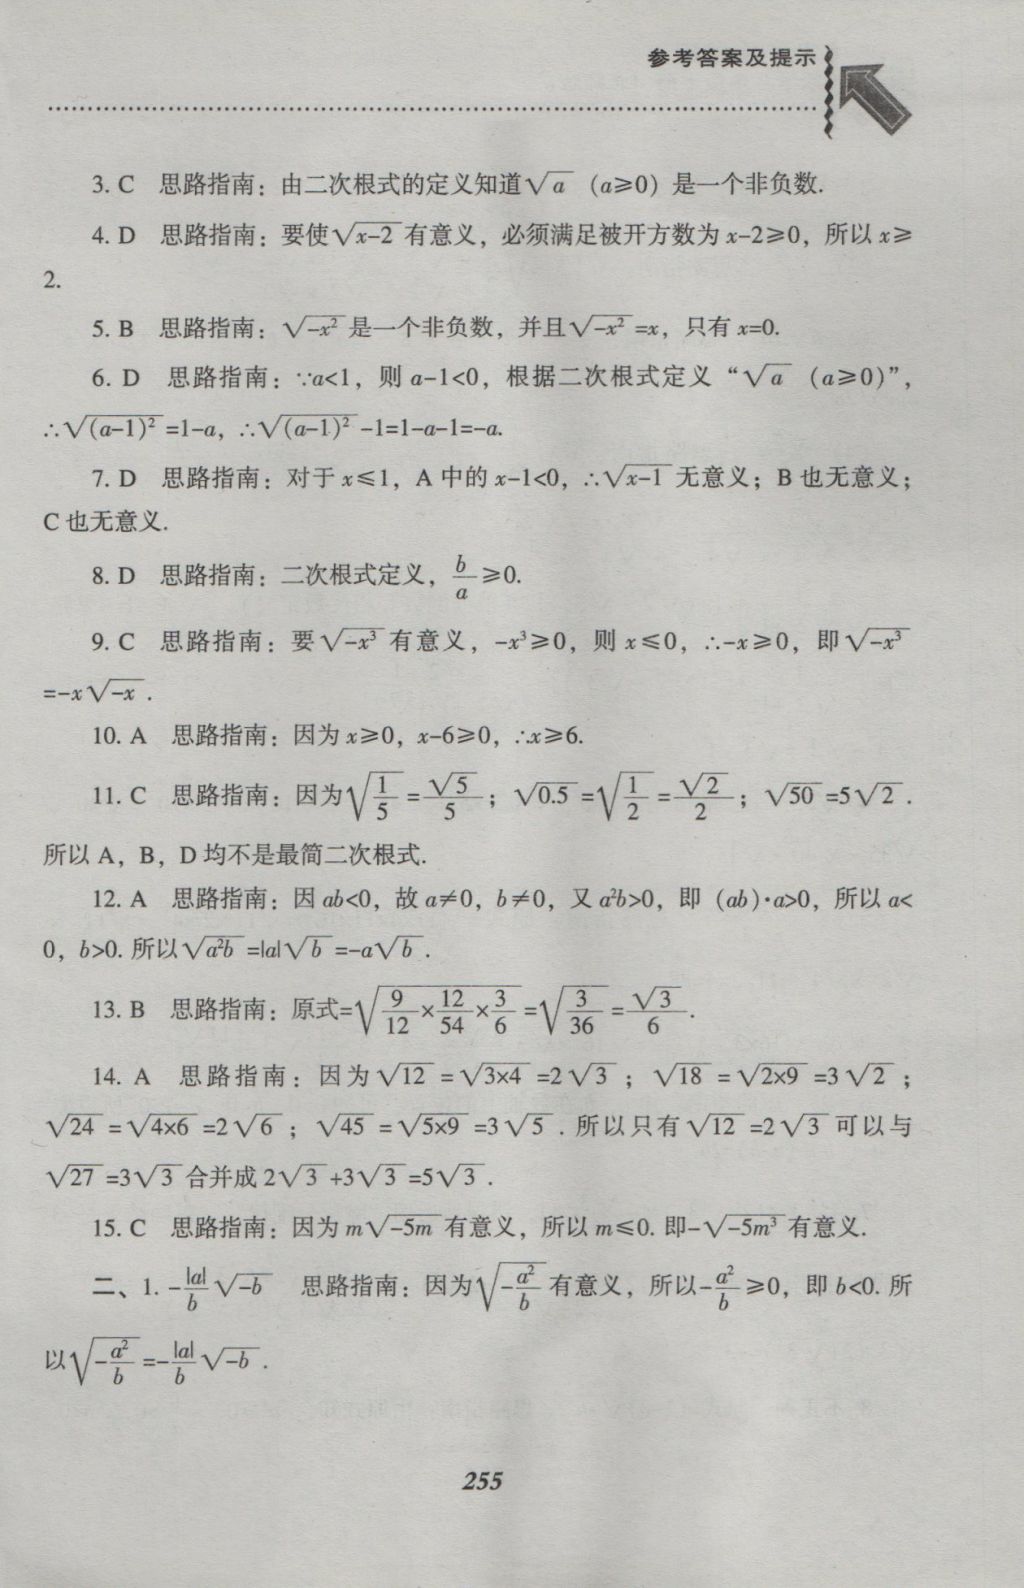 参考答案及提示
3. C 思路指南：由二次根式的定义知道√a（a≥0）是一个非负数.
4. D 思路指南：要使√(x-2)有意义，必须满足被开方数为x-2≥0，所以x≥
2.
5. B 思路指南：√(-x²)是一个非负数，并且√(-x²)=x，只有x=0.
6. D 思路指南：∵a<1，则a-1<0，根据二次根式定义“√a（a≥0）”，
∴√((a-1)²)=1-a，∴√((a-1)²)-1=1-a-1=-a.
7. D 思路指南：对于x≤1，A中的x-1<0，∴√(x-1)无意义；B也无意义；
C也无意义.
8. D 思路指南：二次根式定义，b/a≥0.
9. C 思路指南：要√(-x³)有意义，-x³≥0，则x≤0，∴-x≥0，即√(-x³)
=-x√(-x).
10. A 思路指南：因为x≥0，x-6≥0，∴x≥6.
11. C 思路指南：因为√(1/5)=√5/5；√0.5=√(1/2)=√2/2；√50=5√2.
所以A，B，D均不是最简二次根式.
12. A 思路指南：因ab<0，故a≠0，b≠0，又a²b>0，即（ab）·a>0，所以a<
0，b>0. 所以√(a²b)=|a|√b=-a√b.
13. B 思路指南：原式=√(9/12×12/54×3/6)=√(3/36)=√3/6.
14. A 思路指南：因为√12=√(3×4)=2√3；√18=√(2×9)=3√2；
√24=√(4×6)=2√6；√45=√(5×9)=3√5. 所以只有√12=2√3可以与
√27=3√3合并成2√3+3√3=5√3.
15. C 思路指南：因为m√(-5m)有意义，所以m≤0. 即-√(-5m³)有意义.
二、1. -|a|/b√(-b) 思路指南：因为√(-a²/b)有意义，所以-a²/b≥0，即b<0. 所
以√(-a²/b)=-|a|/b√(-b).
255